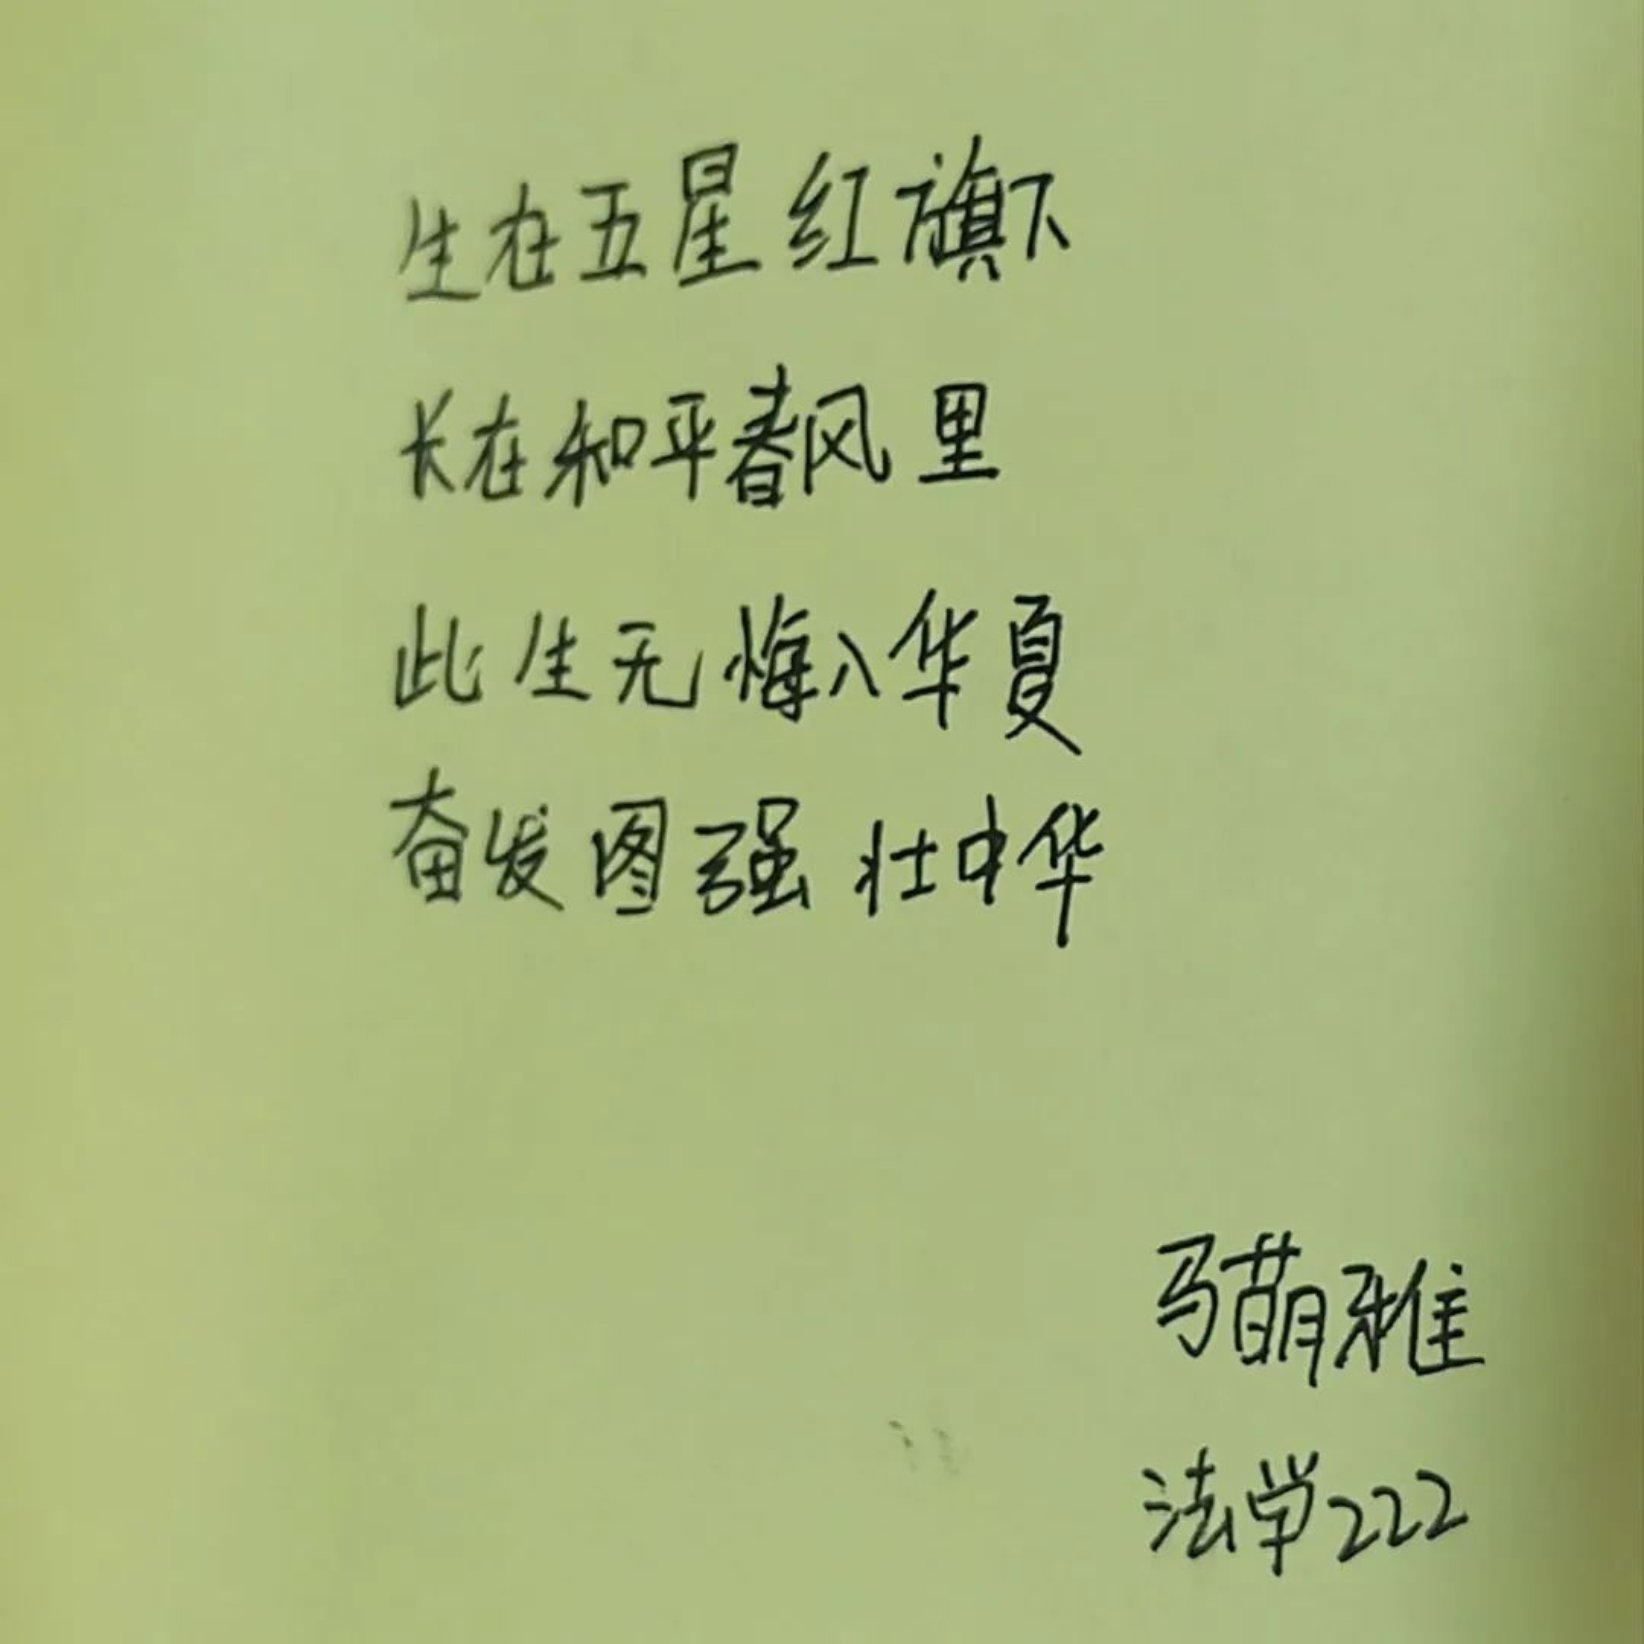 生在五星红旗下
长在和平春风里
此生无悔入华夏
奋发图强壮中华
马萌雅
法学222